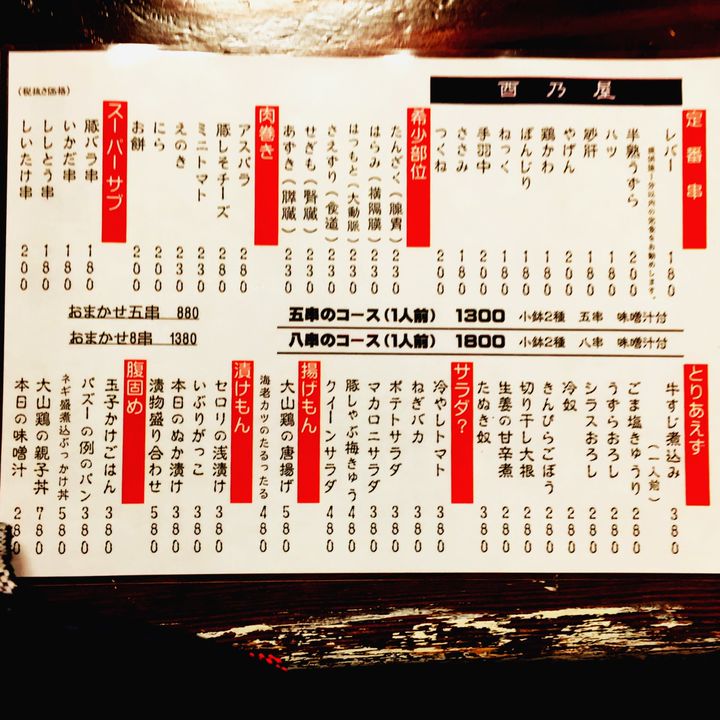 酉乃屋
定番串
レバー 180
提供後1分以内の完食をお勧めします。
半熟うずら 200
ハツ 180
砂肝 180
やげん 180
鶏かわ 180
ぼんじり 180
ねっく 180
手羽中 200
ささみ 180
つくね 200
希少部位
たんざく(腺胃) 230
はらみ(横隔膜) 230
はつもと(大動脈) 230
さえずり(食道) 230
せぎも(腎臓) 230
あずき(脾臓) 230
肉巻き
アスパラ 280
豚しそチーズ 280
ミニトマト 230
えのき 230
にら 200
お餅 200
スーパーサブ
豚バラ串 180
いかだ串 180
ししとう串 180
しいたけ串 200
(税抜き価格)
五串のコース(1人前) 1300 小鉢2種 五串 味噌汁付
八串のコース(1人前) 1800 小鉢2種 八串 味噌汁付
おまかせ五串 880
おまかせ8串 1380
とりあえず
牛すじ煮込み(一人前) 380
ごま塩きゅうり 280
うずらおろし 280
シラスおろし 280
冷奴 280
きんぴらごぼう 280
切り干し大根 280
生姜の甘辛煮 280
たぬき奴 380
サラダ?
冷やしトマト 380
ねぎバカ 380
ポテトサラダ 380
マカロニサラダ 380
豚しゃぶ梅きゅう 480
クイーンサラダ 480
揚げもん
大山鶏の唐揚げ 580
海老カツのたるったる 480
漬けもん
セロリの浅漬け 380
いぶりがっこ 380
本日のぬか漬け 380
漬物盛り合わせ 580
腹固め
玉子かけごはん 380
バズーの例のパン 380
ネギ盛煮込ぶっかけ丼 580
大山鶏の親子丼 780
本日の味噌汁 280